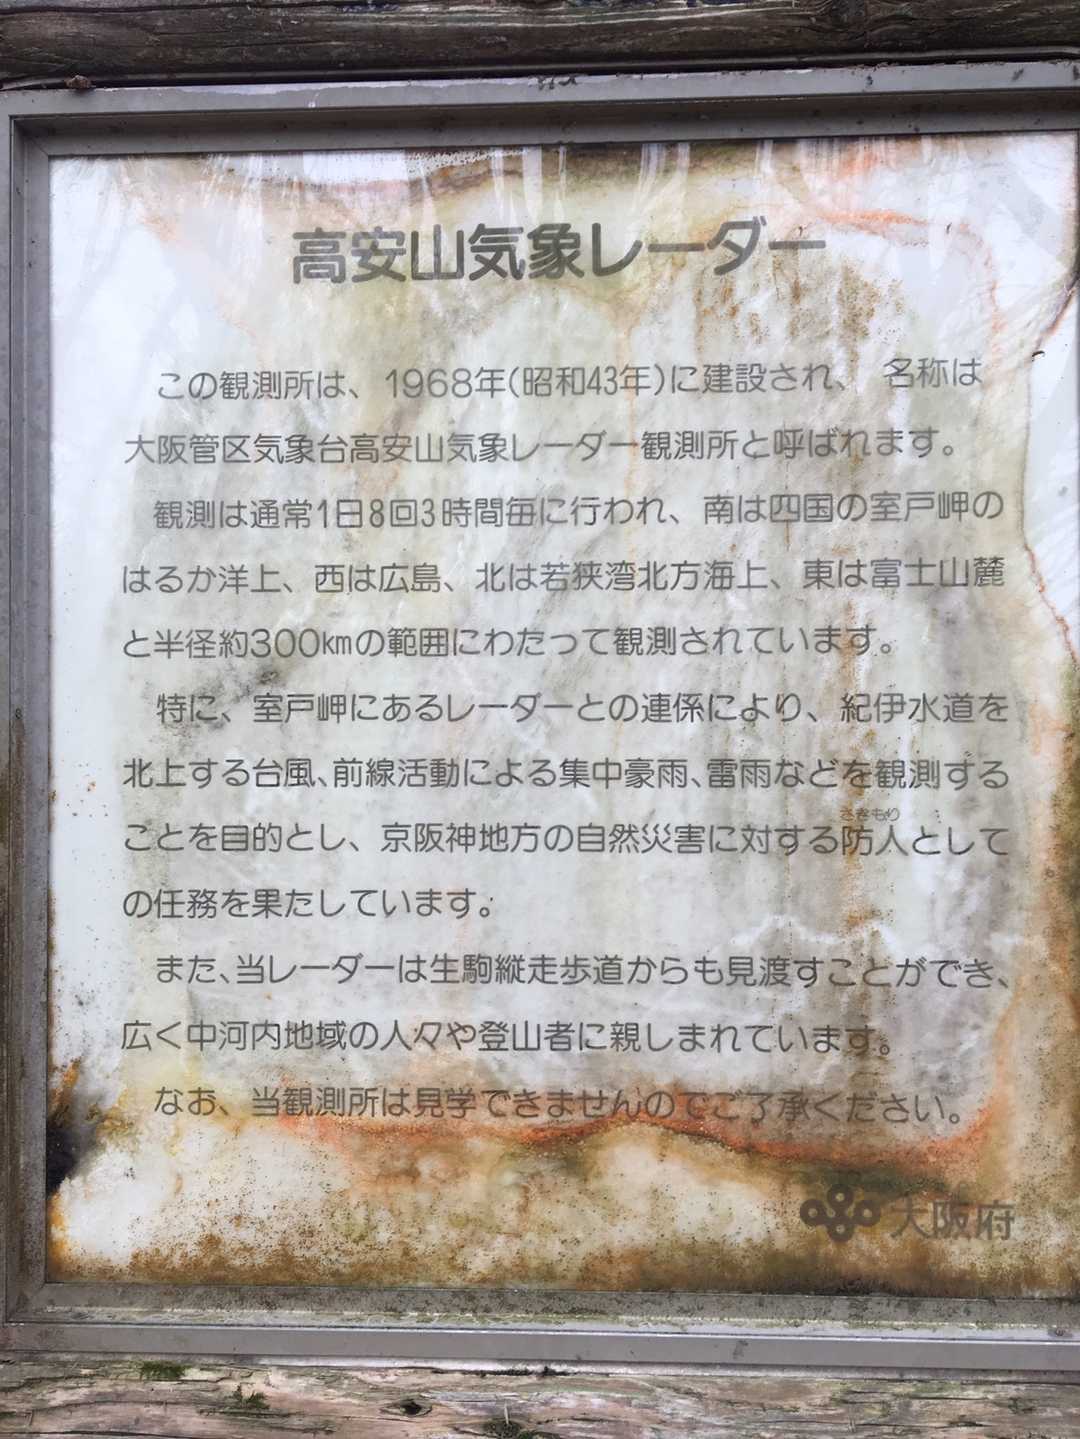 高安山気象レーダー
この観測所は、1968年(昭和43年)に建設され、 名称は
大阪管区気象台高安山気象レーダー観測所と呼ばれます。
観測は通常1日8回3時間毎に行われ、南は四国の室戸岬の
はるか洋上、西は広島、北は若狭湾北方海上、東は富士山麓
と半径約300kmの範囲にわたって観測されています。
特に、室戸岬にあるレーダーとの連係により、紀伊水道を
北上する台風、前線活動による集中豪雨、雷雨などを観測する
さきもり
ことを目的とし、京阪神地方の自然災害に対する防人として
の任務を果たしています。
また、当レーダーは生駒縦走歩道からも見渡すことができ、
広く中河内地域の人々や登山者に親しまれています。
なお、当観測所は見学できませんのでご了承ください。
大阪府